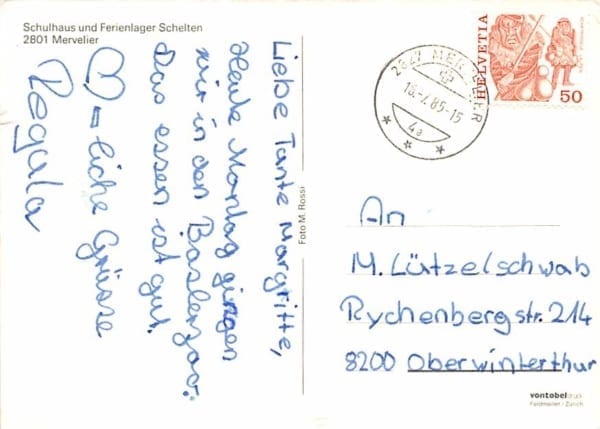 Schulhaus und Ferienlager Schelten
2801 Mervelier
Liebe Tante Margritte,
Heute Montag gingen
wir in den
Das essen ist gut.
♡-liche Grüsse
Regula
Foto M. Rossi
HELVETIA
50
An
M. Lützelschwab
Rychenbergstr. 214
8200 Oberwinterthur
vontobeldruck
Feldmeilen / Zürich